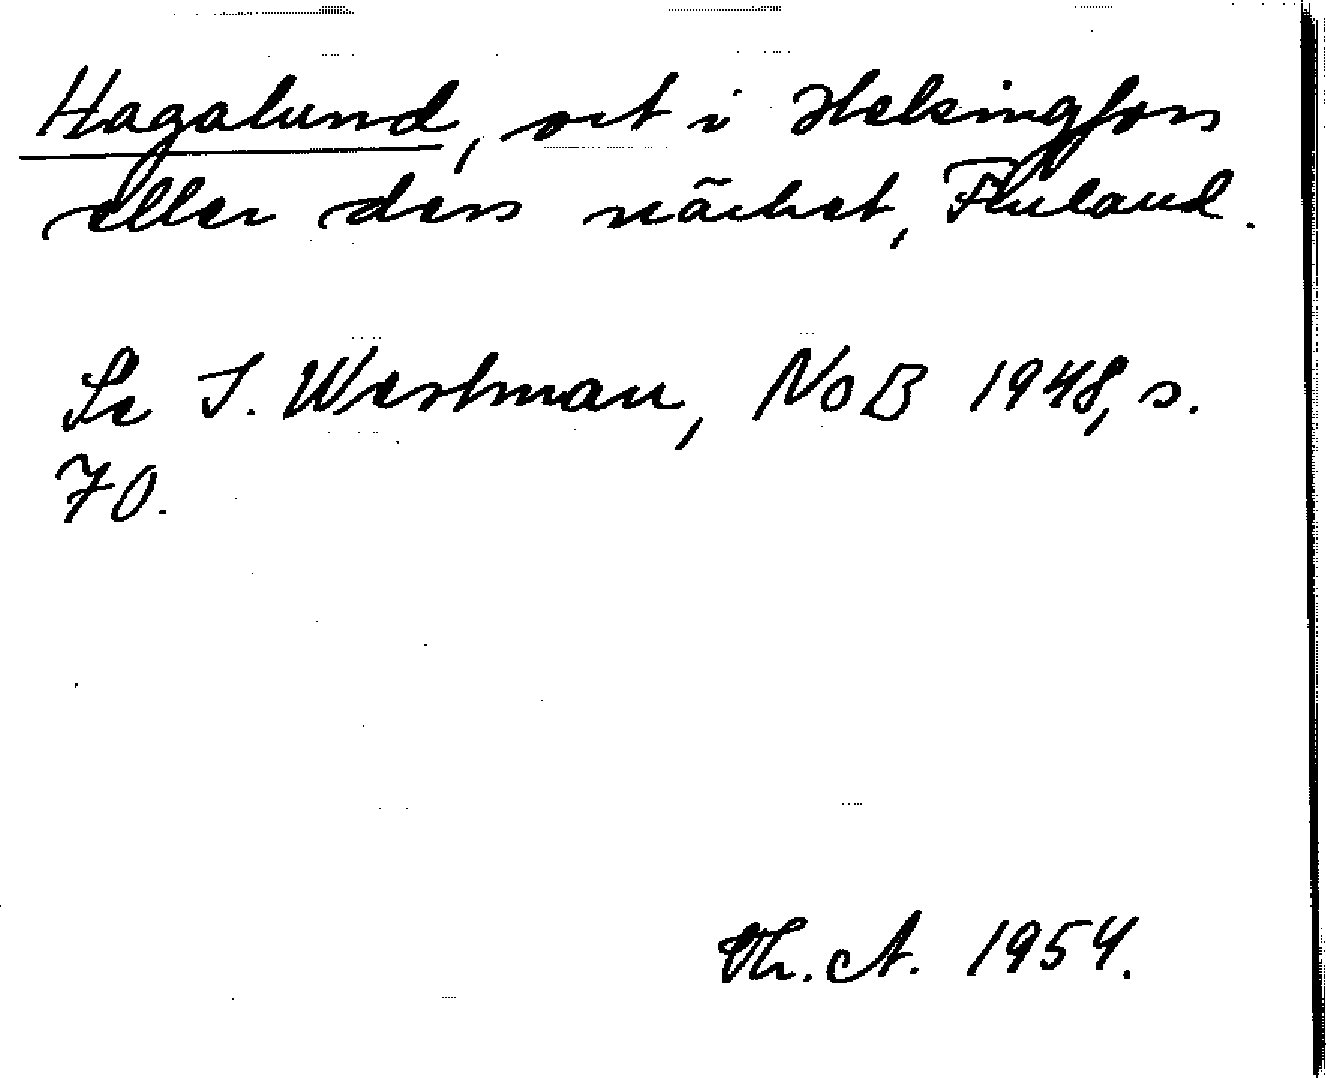 Hagalund, ort i Helsingfors
eller dess närhet, Finland.
Se I. Westman, NoB 1948, s.
70.
Th. A. 1954.